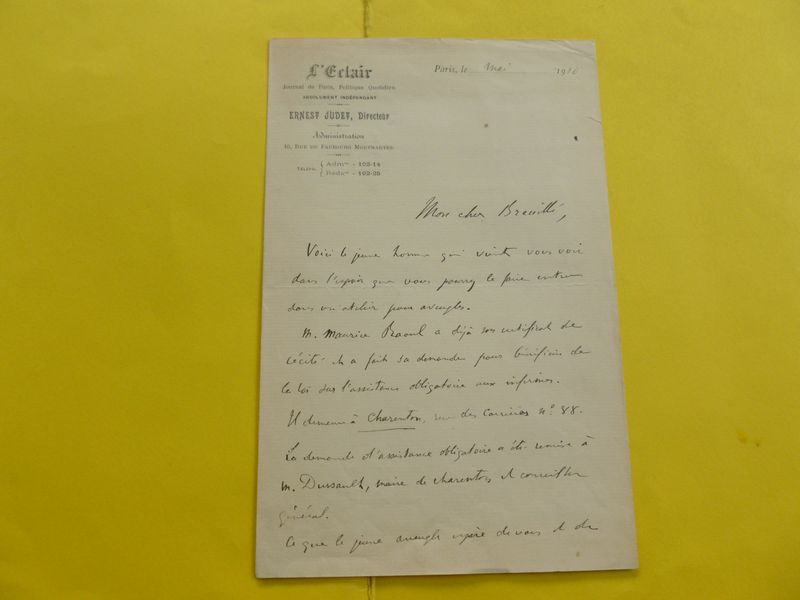 L'Eclair
Journal de Paris, Politique Quotidien
ABSOLUMENT INDÉPENDANT
ERNEST JUDET, Directeur
Administration
10, RUE DU FAUBOURG MONTMARTRE
TÉLÉPH. { Admon - 102-14
Rédon - 102-25
Paris, le Mai 1910
Mon cher Breuillé,
Voici le jeune homme qui vient vous voir
dans l'espoir que vous pourrez le faire entrer
dans un atelier pour aveugles.
M. Maurice Raoul a déjà son certificat de
cécité. Il a fait sa demande pour bénéficier de
la loi sur l'assistance obligatoire aux infirmes.
Il demeure à Charenton, rue des Carrières n° 88.
La demande d'assistance obligatoire a été remise à
M. Dussault, maire de Charenton et conseiller
général.
Ce que le jeune aveugle espère de vous et de